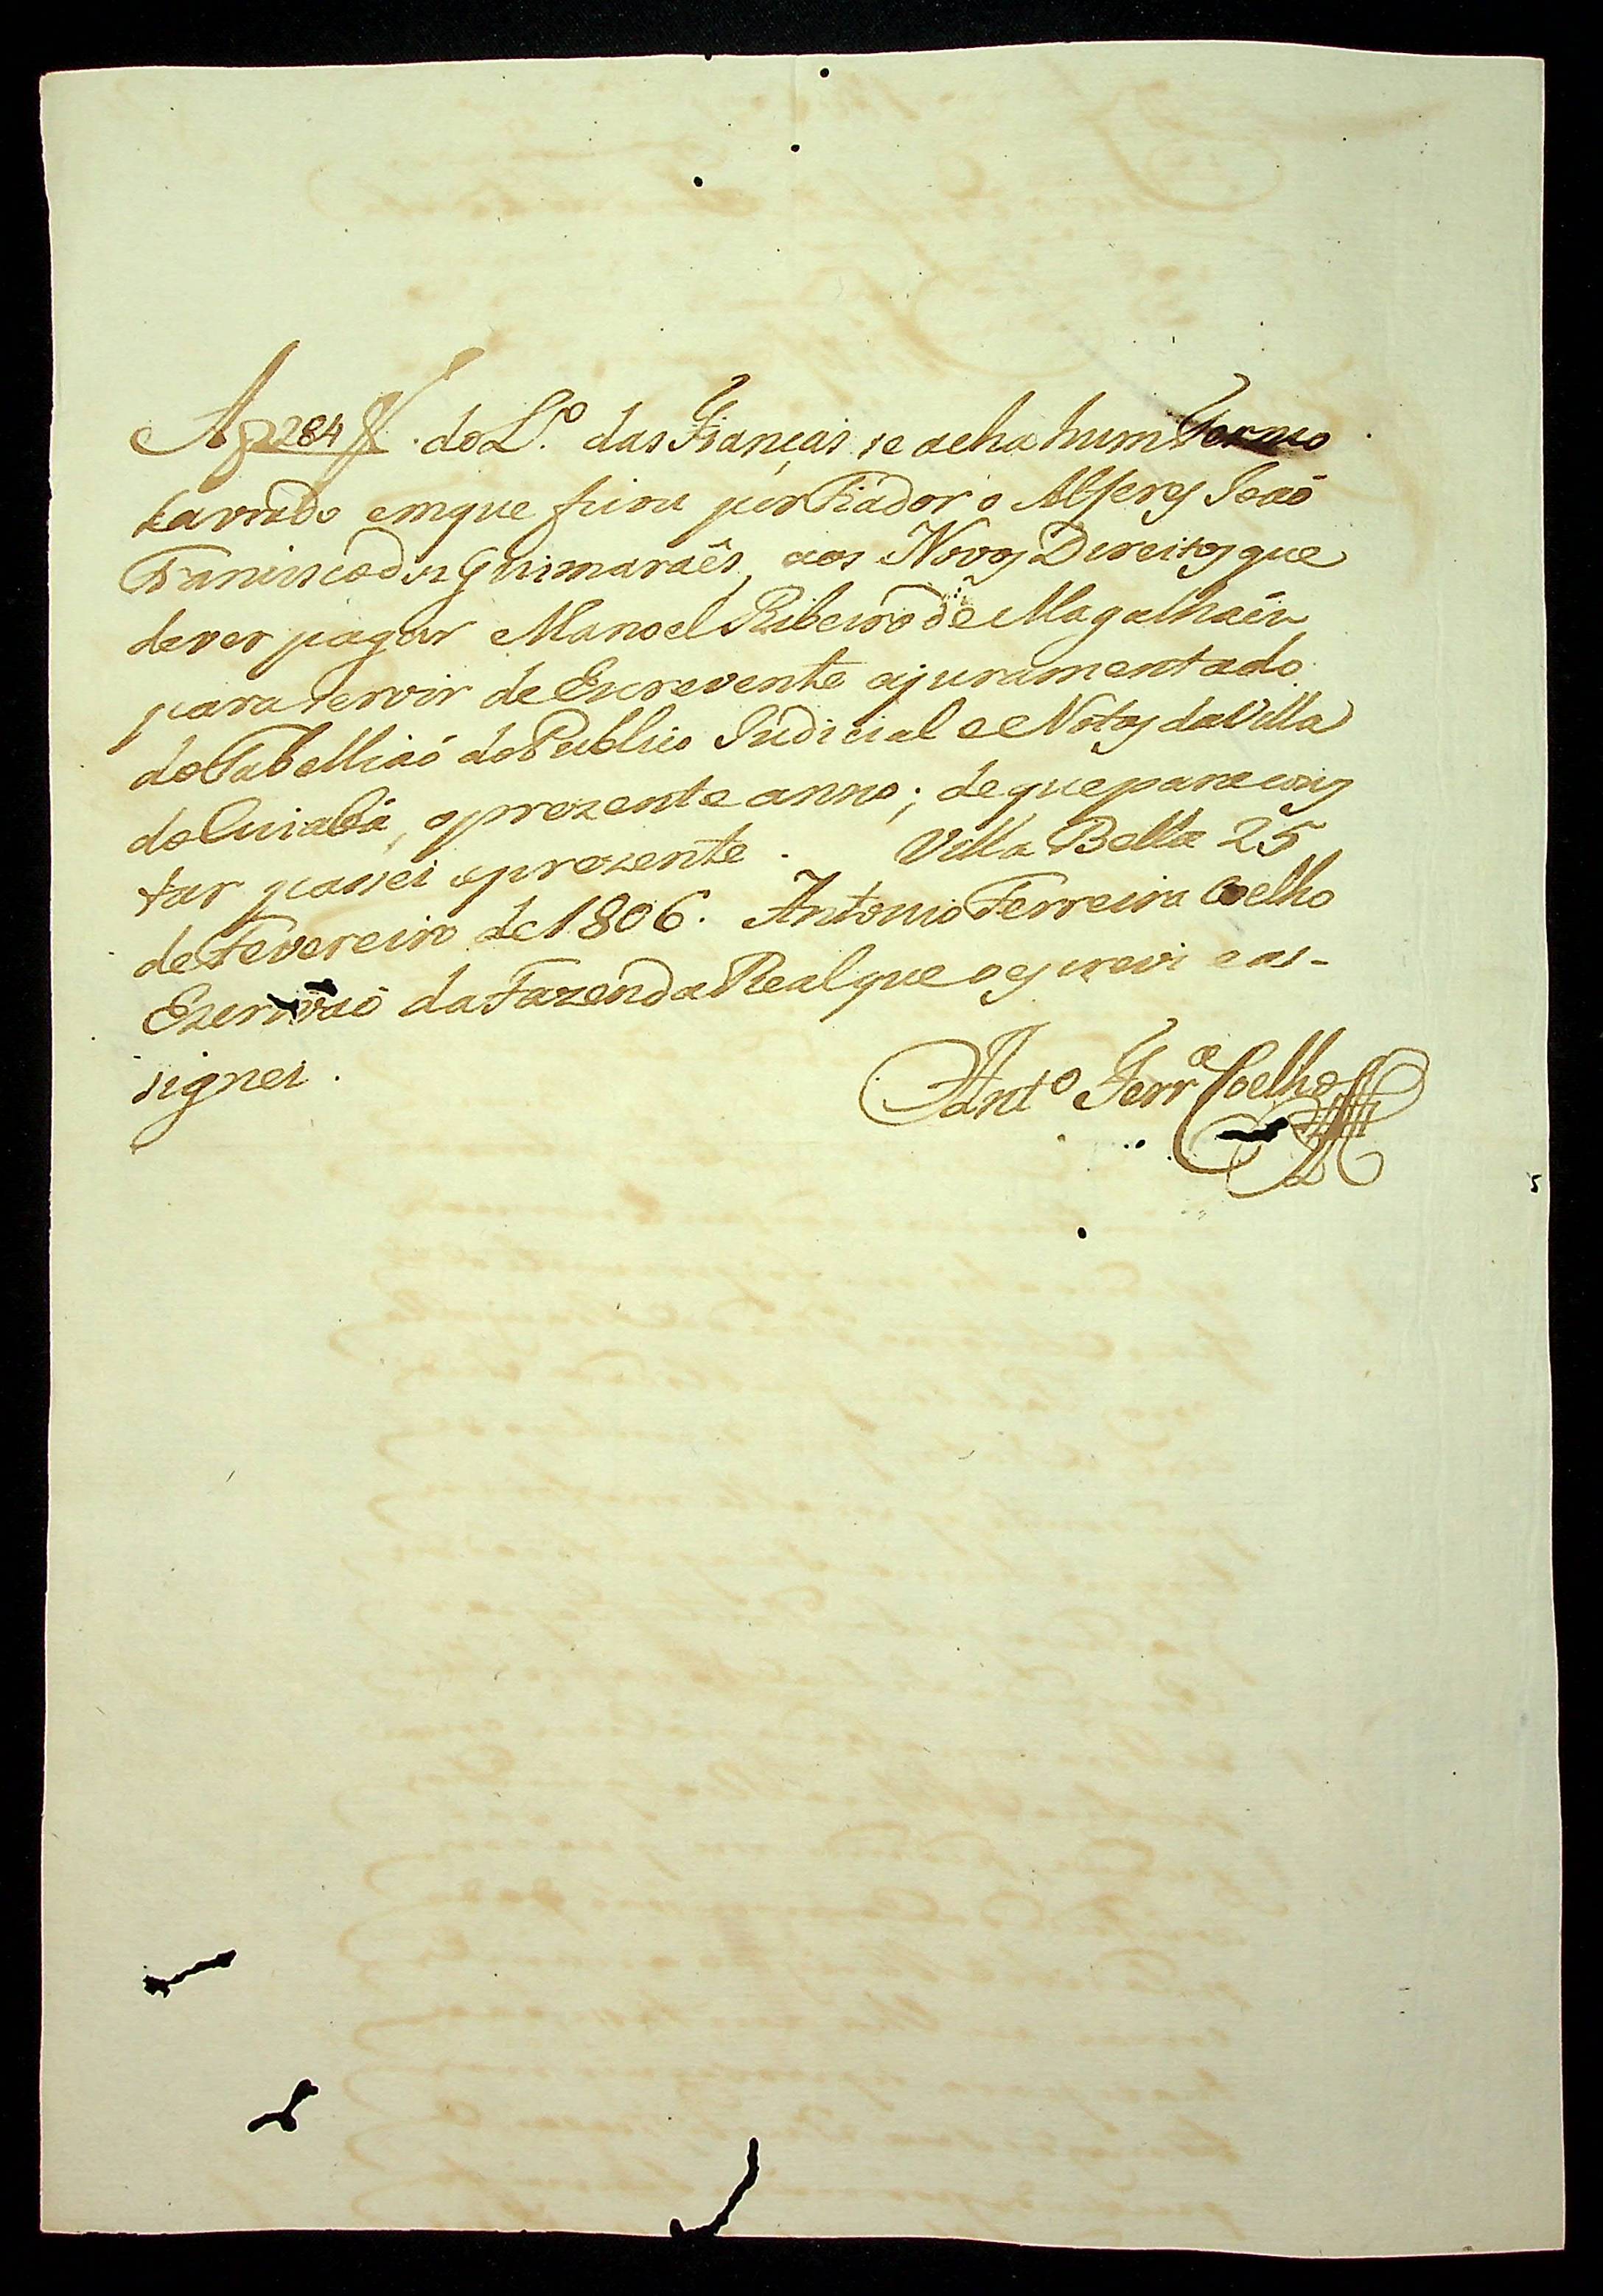 A f 284 V. do L.º das Fianças se acha hum Termo
Lavrado em que ficou por Fiador o Alferes Joaõ
Francisco dos Guimaraẽs, aos Novos Direitos que
dever pagar Manoel Ribeiro de Magalhaẽs
para servir de Escrevente ajuramentado
do Tabelliaõ do Publico Judicial e Notas da Villa
do Cuiabá, o prezente anno; de que para cons
tar passei o prezente. Villa Bella 25
de Fevereiro de 1806. Antonio Ferreira Coelho
Escrivaõ da Fazenda Real que o escrevi e as-
signei.
Antº Ferrª Coelho